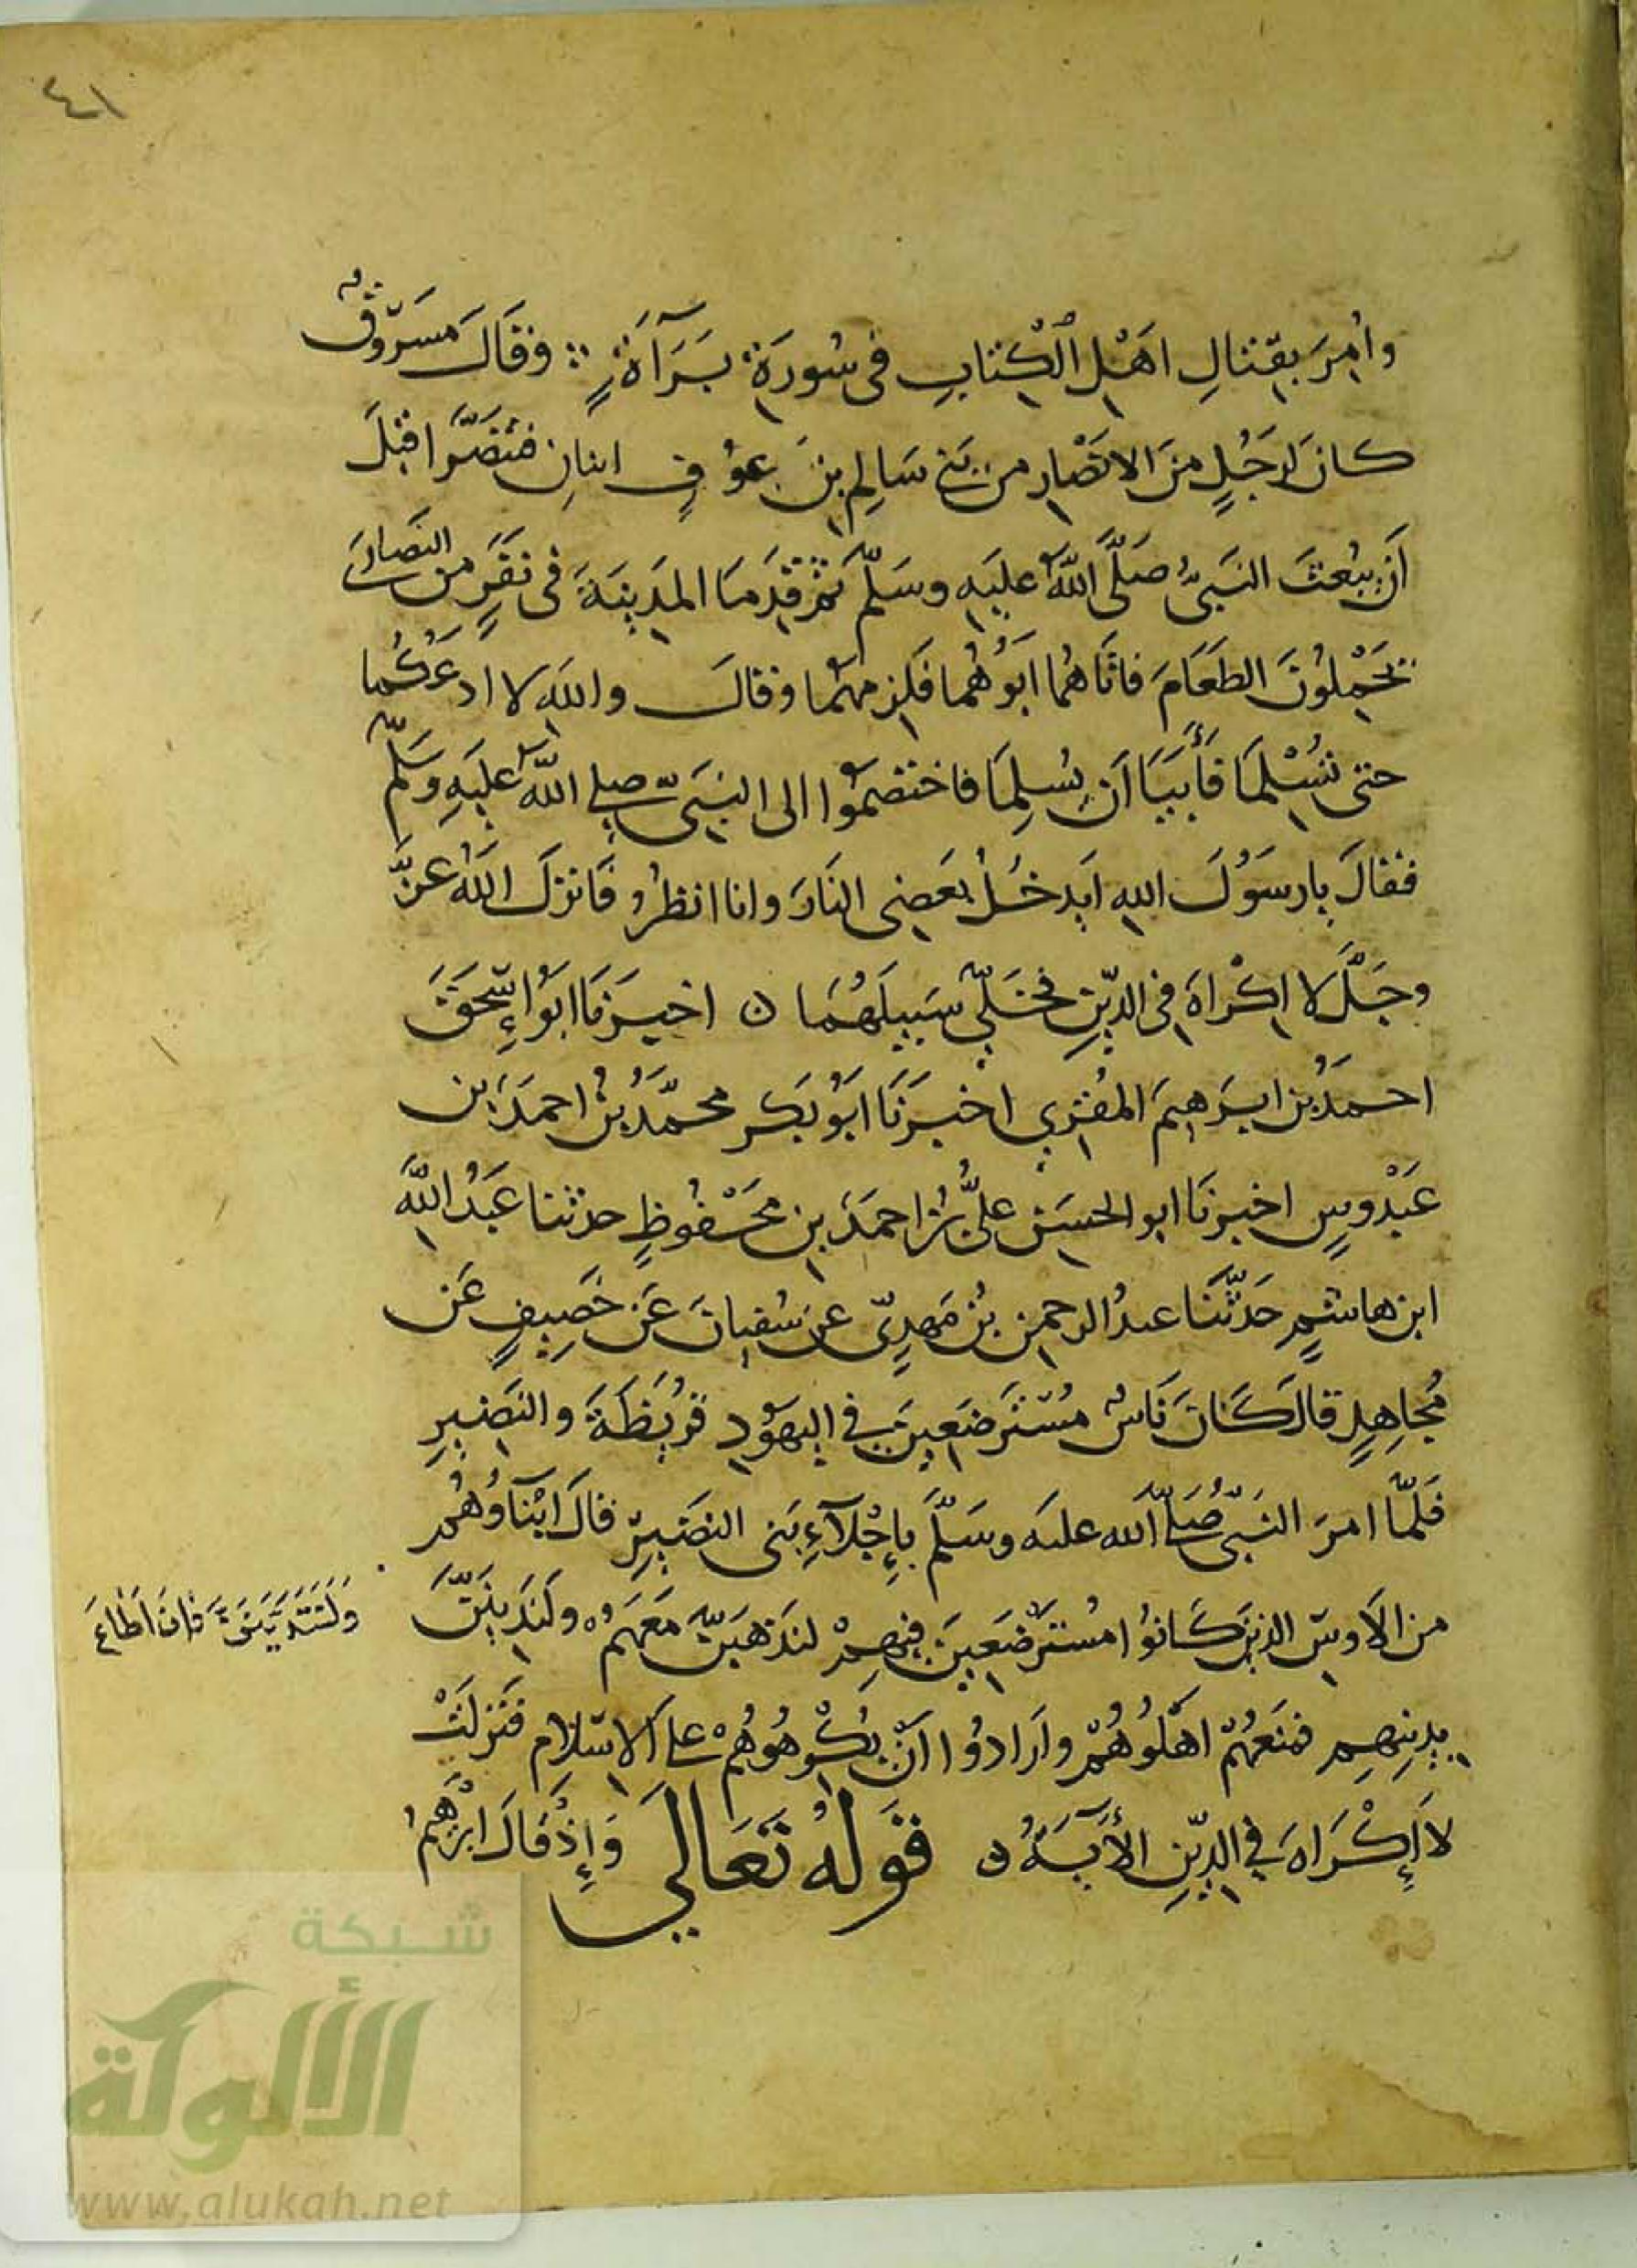 ٤١
وأُمِرَ بقِتالِ اهْلِ الْكِتابِ فى سُورَةِ بَرَآةَ وقَالَ مسَرُوقٌ
كانَ لرَجُلٍ منَ الانصَارِ من بَنى سَالِمِ بنَ عَوْفٍ ابنانِ فتنَصَّرا قبْلَ
أَن يُبْعثَ النَبىُّ صَلَّى اللهُ عليَهِ وسَلَّمَ ثمَّ قدِمَا المدَينَةَ فى نَفَرٍ من النَصارَى
يَحْمِلُونَ الطَعَامَ فاتَاهُما ابَوُهُما فَلزِمهُما وقالَ واللهِ لا ادعَكُما
حتى تُسْلِمَا فَأَبَيَا اَن يُسلِمَا فاختصَموُا الى النبَىِّ صلى اللهُ عليَهِ وَسَلَّمَ
فقالَ يارسَوُلَ اللهِ ايَدخُلُ بَعضى النارَ وانا انظرُ فَانزلَ اللهُ عزَّ
وجَلَّ لا اِكْراهَ فى الدّينِ فخَلَّى سَبيلَهُمَا ٥ اخبرَنَا ابَوُ إسْحَقَ
احمَدُ بن ابرَهيمَ المقُرِي اخبرَنَا ابَوُ بكرٍ محمَّدُ بنُ احمدَ بن
عَبْدوسٍ اخبرنَا ابو الحسَن علىُّ بنُ احمَدَ بن مَحْفُوظٍ حدثنا عَبَدُ اللهِ
ابن هاشمٍ حَدّثَنا عبدُ الرحمن بنُ مَهدِىّ عن سُفيانَ عَن خَصِيفٍ عَن
مُجاهِدٍ قالَ كَانَ نَاسٌ مُسْترَضَعِينَ فى اليهَوُدِ قرُيظَةَ والنَضيرِ
فَلمّا امرَ النبىُّ صَلى الله عليه وسَلَّمَ بِإجْلآءِ بَنى النضَيرِ قالَ ابْنآوُهُم
من الاَوسِ الذينَ كَانوُا مُسْترَضَعينَ فيهِمْ لنَذهَبَنَّ مَعَهمُ ولَندَينَنَّ
وَلَنَتَدَيَّنَنَّ فانَ اطاعَ
بدِينِهِم فمنَعهُمْ اهْلوُهُمْ وارَادوُا انْ يُكْرِهوُهُمْ على الاسْلامِ فنَزلَتْ
لاَ إكْرَاهَ فى الدّينِ الأيَةَ ٥ قَوْلُهُ تَعَالَى وَإذْ قالَ ابْرَهِمُ
شبكة
الألوكة
www.alukah.net